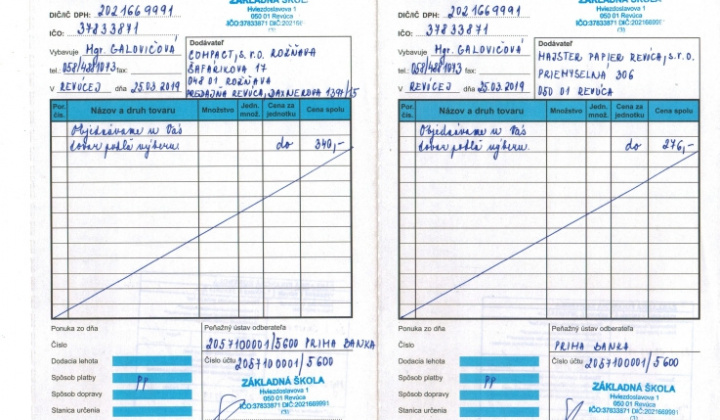 DIČ/IČ DPH: 2021669991
IČO: 37833871
ZÁKLADNÁ ŠKOLA
Hviezdoslavova 1
050 01 Revúca
IČO:37833871 DIČ:2021669991
Vybavuje Mgr. GALOVIČOVÁ
tel. 058/4881073 fax:
V REVÚCEJ dňa 25.03.2019
Dodávateľ
COMPACT, s.r.o. ROŽŇAVA
ŠAFÁRIKOVA 17
048 01 ROŽŇAVA
PREDAJŇA REVÚCA, DAXNEROVA
Por. čís.
Názov a druh tovaru
Množstvo
Jedn. množ.
Cena za jednotku
Cena spolu
Objednávame u Vás
tovar podľa výberu do 340,-
Ponuka zo dňa
Číslo
Dodacia lehota
Spôsob platby PP
Spôsob dopravy
Stanica určenia
Peňažný ústav odberateľa
2057100001/5600 PRIMA BANKA
Číslo účtu 2057100001/5600
ZÁKLADNÁ ŠKOLA
Hviezdoslavova 1
050 01 Revúca
IČO:37833871 DIČ:2021669991
(1)
DIČ/IČ DPH: 2021669991
IČO: 37833871
ZÁKLADNÁ ŠKOLA
Hviezdoslavova 1
050 01 Revúca
IČO:37833871 DIČ:2021669991
(1)
Vybavuje Mgr. GALOVIČOVÁ
tel. 058/4881073 fax:
V REVÚCEJ dňa 25.03.2019
Dodávateľ
MAJSTER PAPIER REVÚCA, s.r.o.
PRIEMYSELNÁ 306
050 01 REVÚCA
Por. čís.
Názov a druh tovaru
Množstvo
Jedn. množ.
Cena za jednotku
Cena spolu
Objednávame u Vás
tovar podľa výberu do 276,-
Ponuka zo dňa
Číslo
Dodacia lehota
Spôsob platby PP
Spôsob dopravy
Stanica určenia
Peňažný ústav odberateľa
PRIMA BANKA
Číslo účtu 2057100001/5600
ZÁKLADNÁ ŠKOLA
Hviezdoslavova 1
050 01 Revúca
IČO:37833871 DIČ:2021669991
(1)